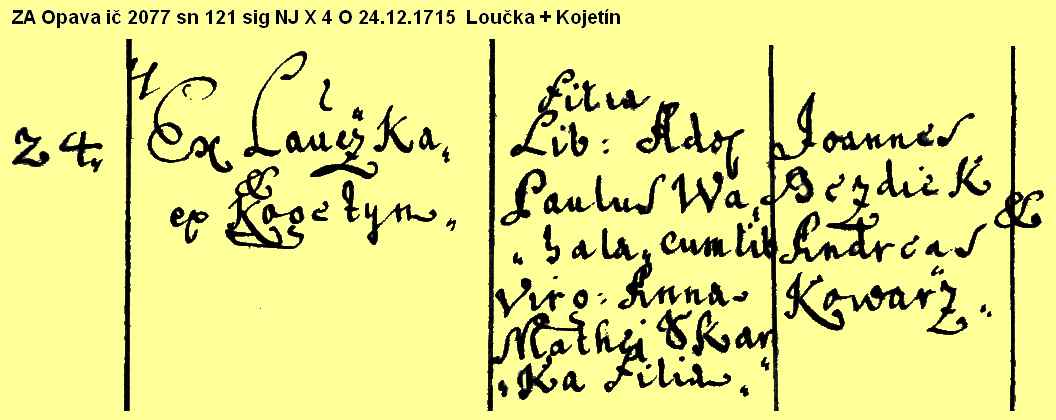 ZA Opava ič 2077 sn 121 sig NJ X 4 O 24.12.1715 Loučka + Kojetín
24.
Ex Laučžka.
&
ex Kogetyn.
Filia
Lib: Adol
Paulus Wa„
„hala, cum lib
Viro: Anna
Mathej Skar
„Ka Filia„
Joannes
Bezdiek &
Andreas
Kowarž.